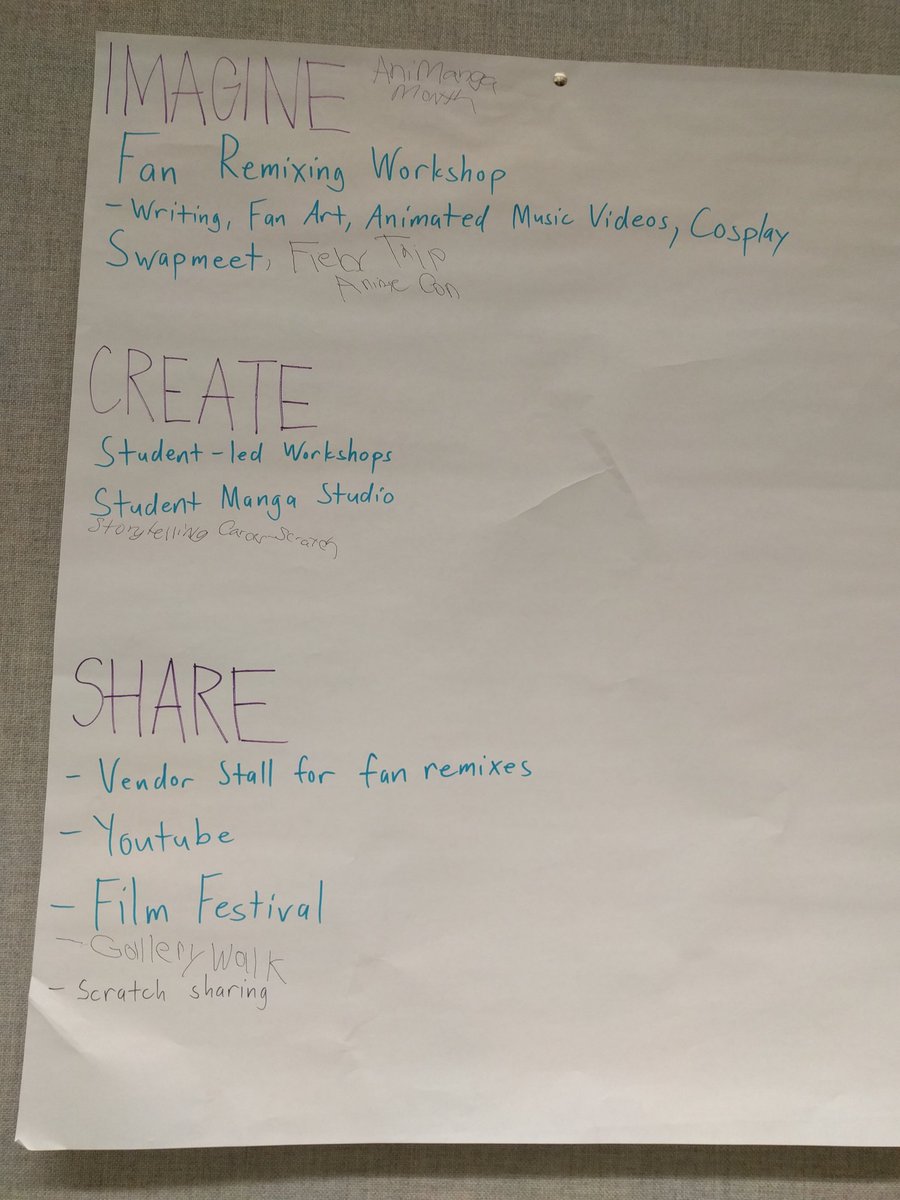 IMAGINE AniManga
Month
Fan Remixing Workshop
- Writing, Fan Art, Animated Music Videos, Cosplay
Swapmeet, Field Trip
Anime Con
CREATE
Student-led Workshops
Student Manga Studio
Storytelling Scratch
SHARE
- Vendor Stall for fan remixes
- Youtube
- Film Festival
- Gallery Walk
- Scratch sharing